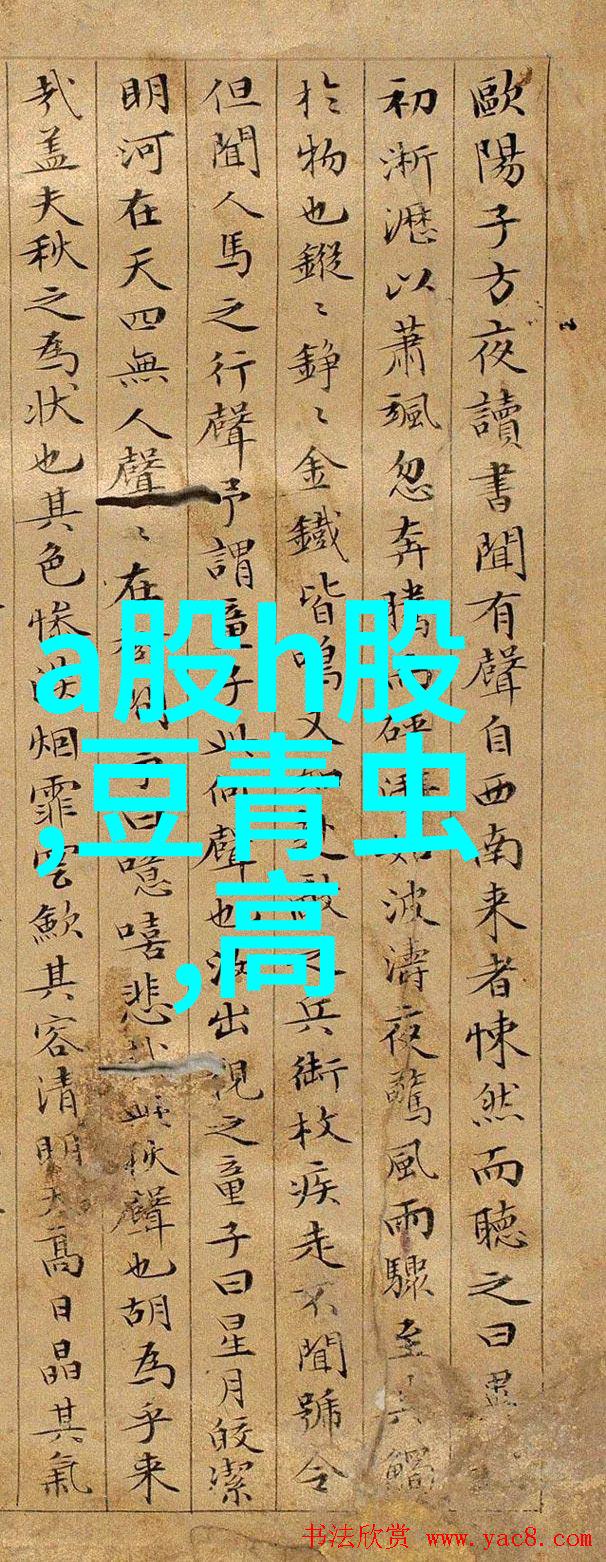 歐陽子方夜讀書聞有聲自西南来者悚然而聽之曰異
初淅瀝以蕭颯忽奔騰而砰湃如波濤夜驚風雨驟至其觸
於物也鏦々錚々金鐵皆鳴又赴敵之兵銜枚疾走不聞號令
但聞人馬之行聲予謂童子此何聲也汝出視之童子曰星月皎潔
明河在天四無人聲々在樹間予曰噫嘻悲此秋聲也胡為乎来
哉盖夫秋之為状也其色惨淡烟霏雲歛其容清明天高日晶其氣
a股h股
,豆青虫
,高
书法欣赏 www.yac8.com